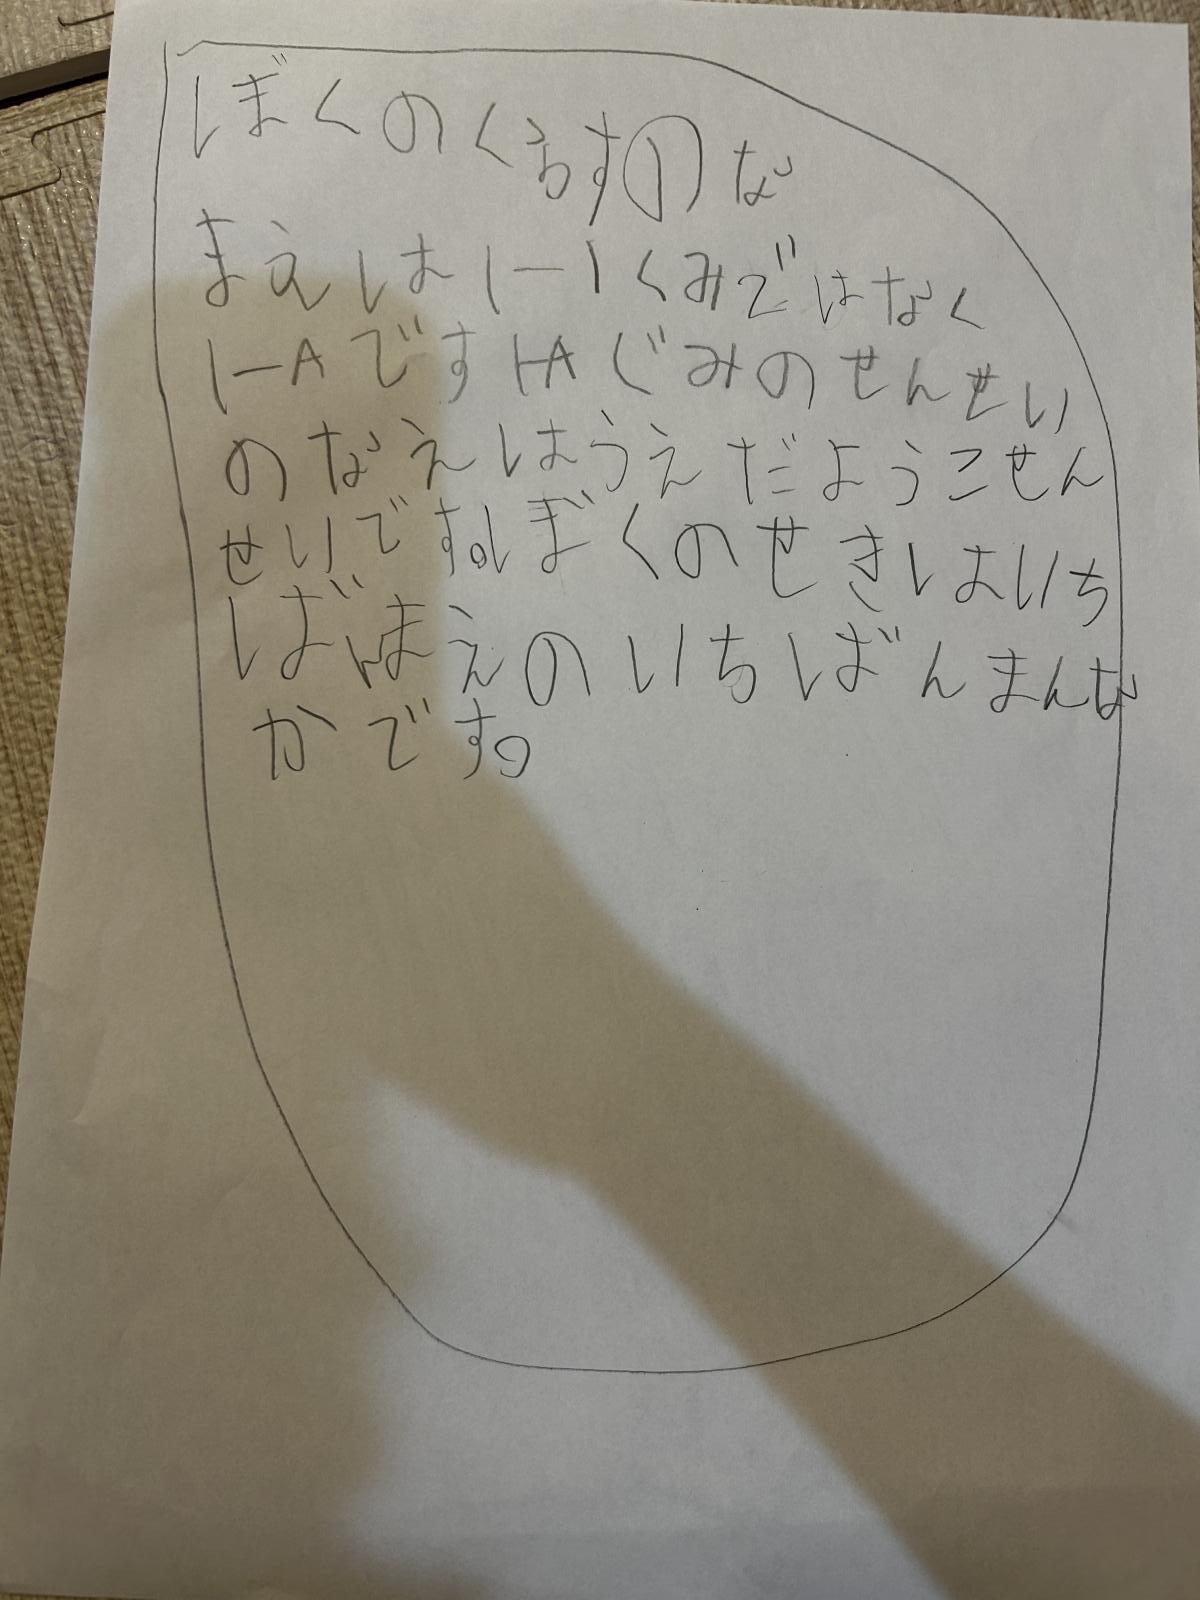 ぼくのくらすのな
まえは1ー1くみではなく
1ーAです1-Aぐみのせんせい
のなえはうえだようこせん
せいです。ぼくのせきはいち
ばんまえのいちばんまんな
かです。